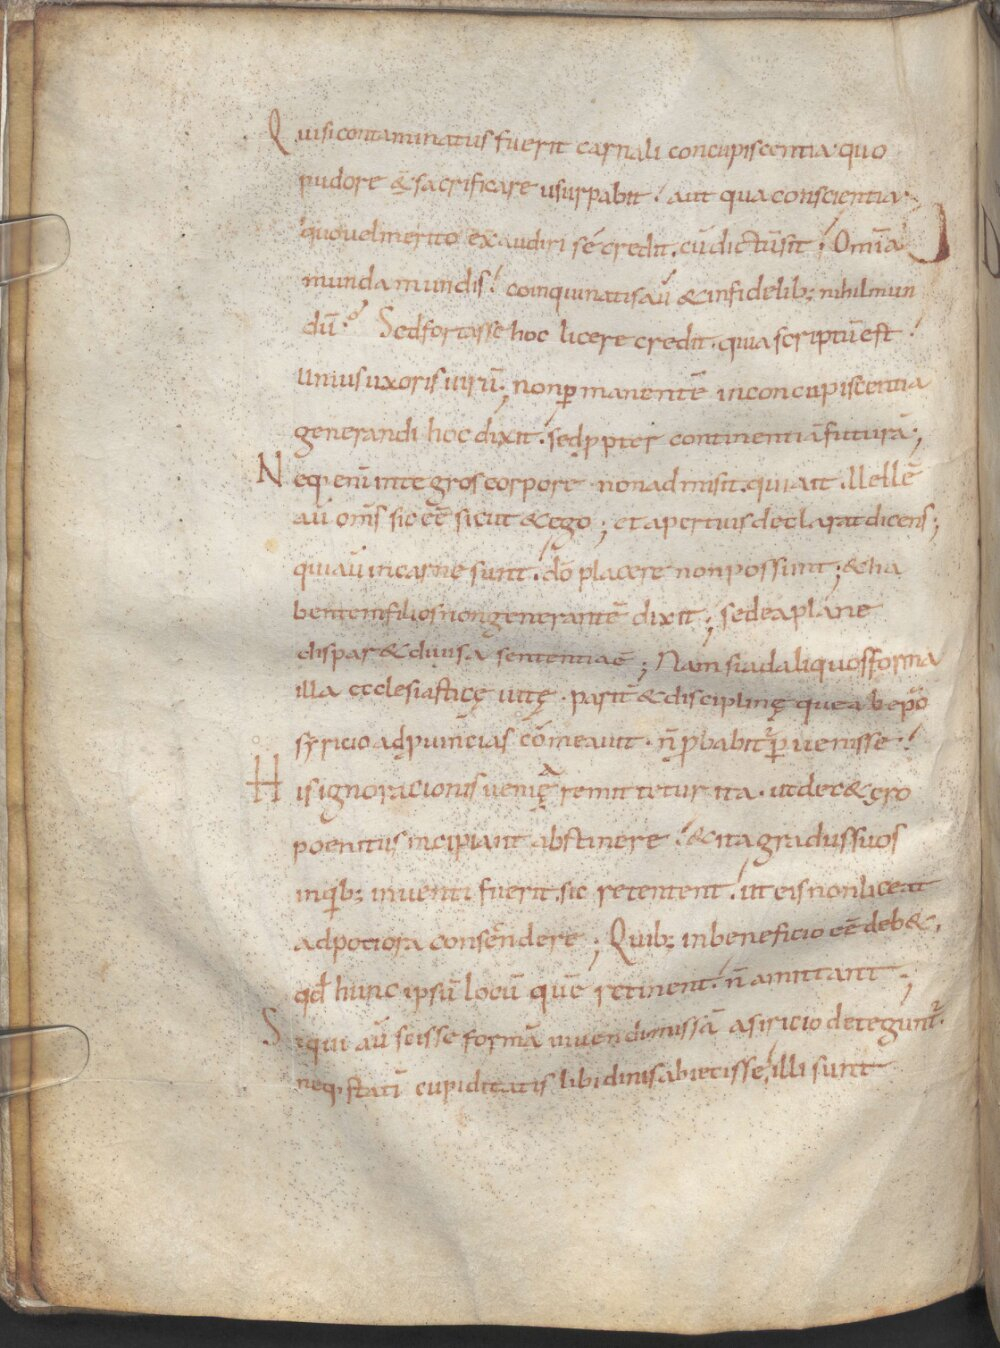 Qui si contaminatus fuerit carnali concupiscentia quo
pudore & sacrificare usurpabit? aut qua conscientia
quo vel merito exaudiri sé credit. cū dictū sit? Omīa
munda mundis? coinquinatis aū & infidelib; nihil mun
dū. Sed fortasse hoc licere credit. quia scriptū est?
unius uxoris uirū; non ꝑmanentē in concupiscentia
generandi hoc dixit. sed ꝓpter continentiā futurā;
Neq; enī integros corpore non admisit. qui ait. Uellē
aū oms̄ sic eē̄ sicut & ego; et apertius declarat dicens;
qui aū in carne sunt. dō placere non possunt; & ha
bentem filios non generantē dixit; sed ea plane
dispar & diuisa sententia ē; Nam si ad aliquos forma
illa ecclesiasticę uitę parit̄ & disciplinę que ab ep̄o
syricio ad ꝓuincias cōmeauit. n̄ ꝓbabit̄ ꝑuenisse?
His ignoracionis uenię remittetur ita. ut de c&ęro
poenitus incipiant abstinere? & ita gradus suos
in qͥb; inuenti fuerit. sic retentent. ut eis non liceat
ad pociora consc̄endere; Quib; in beneficio eē deb&,
qđ hunc ipsū locū quē retinent. n̄ amittant;
Siqui aū scisse formā uiuendi missā a siricio detegunt̄.
neq; statī cupiditatis libidinis abiecisse, illi sunt